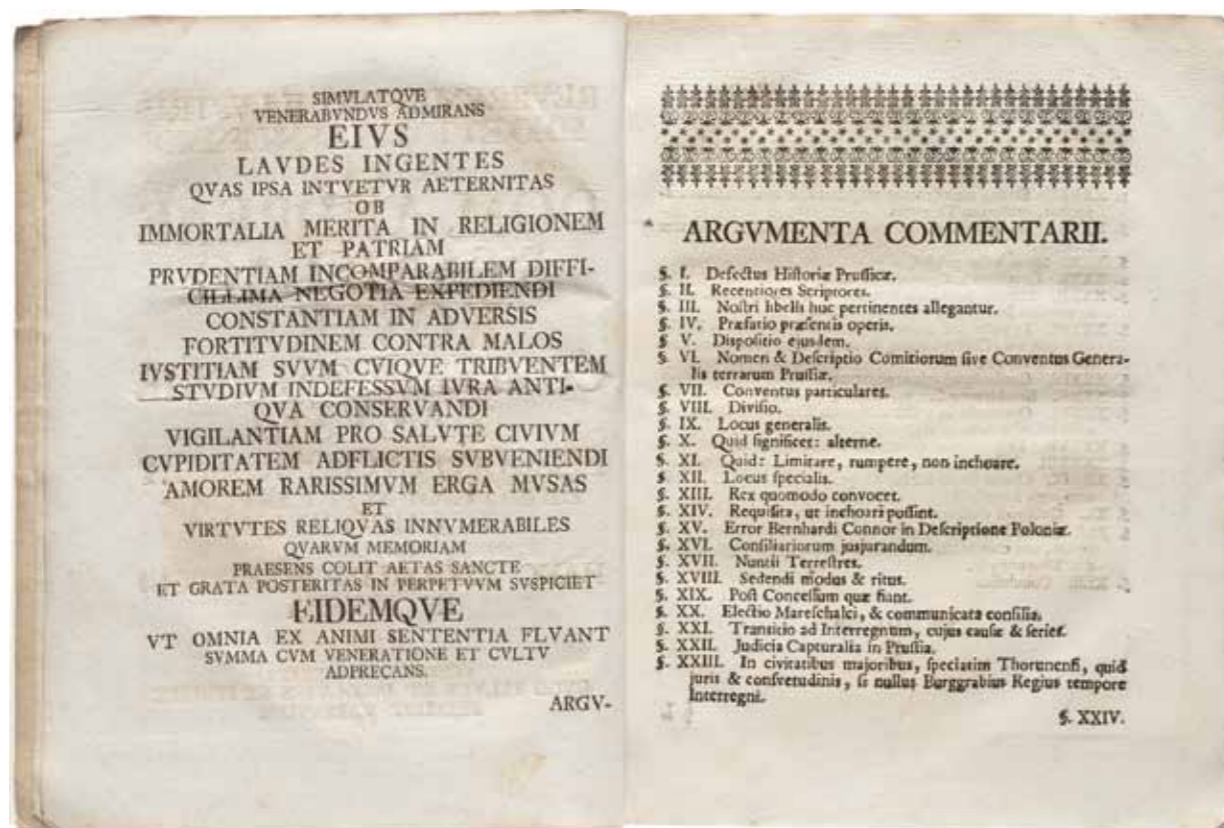 SIMVLATQVE
VENERABVNDVS ADMIRANS
EIVS
LAVDES INGENTES
QVAS IPSA INTVETVR AETERNITAS
OB
IMMORTALIA MERITA IN RELIGIONEM
ET PATRIAM
PRVDENTIAM INCOMPARABILEM DIFFI-
CILLIMA NEGOTIA EXPEDIENDI
CONSTANTIAM IN ADVERSIS
FORTITVDINEM CONTRA MALOS
IVSTITIAM SVVM CVIQVE TRIBVENTEM
STVDIVM INDEFESSVM IVRA ANTI-
QVA CONSERVANDI
VIGILANTIAM PRO SALVTE CIVIVM
CVPIDITATEM ADFLICTIS SVBVENIENDI
AMOREM RARISSIMVM ERGA MVSAS
ET
VIRTVTES RELIQVAS INNVMERABILES
QVARVM MEMORIAM
PRAESENS COLIT AETAS SANCTE
ET GRATA POSTERITAS IN PERPETVVM SVSPICIET
EIDEMQVE
VT OMNIA EX ANIMI SENTENTIA FLVANT
SVMMA CVM VENERATIONE ET CVLTV
ADPRECANS.
ARGV-
ARGVMENTA COMMENTARII.
§. I. Defectus Hiſtoriæ Pruſſicæ.
§. II. Recentiores Scriptores.
§. III. Noſtri libelli huc pertinentes allegantur.
§. IV. Præfatio præſentis operis.
§ V. Diſpoſitio ejusdem.
§ VI. Nomen & Deſcriptio Comitiorum ſive Conventus Genera-
lis terrarum Pruſſiæ.
§. VII. Conventus particulares.
§. VIII. Diviſio.
§. IX. Locus generalis.
§. X. Quid ſignificet: alterne.
§. XI. Quid: Limitare, rumpere, non inchoare.
§ XII. Locus ſpecialis.
§. XIII. Rex quomodo convocet.
§. XIV. Requiſita, ut inchoari poſſint.
§. XV. Error Bernhardi Connor in Deſcriptione Poloniæ.
§. XVI. Conſiliariorum jusjurandum.
§. XVII. Nuntii Terreſtres.
§. XVIII. Sedendi modus & ritus.
§. XIX. Poſt Conceſſum quæ fiant.
§. XX. Electio Mareſchalci, & communicata conſilia.
§. XXI. Tranſitio ad Interregnum, cujus cauſæ & ſeries.
§. XXII. Judicia Capturalia in Pruſſia.
§. XXIII. In civitatibus majoribus, ſpeciatim Thorunenſi, quid
juris & conſvetudinis, ſi nullus Burggrabius Regius tempore
Interregni.
§. XXIV.